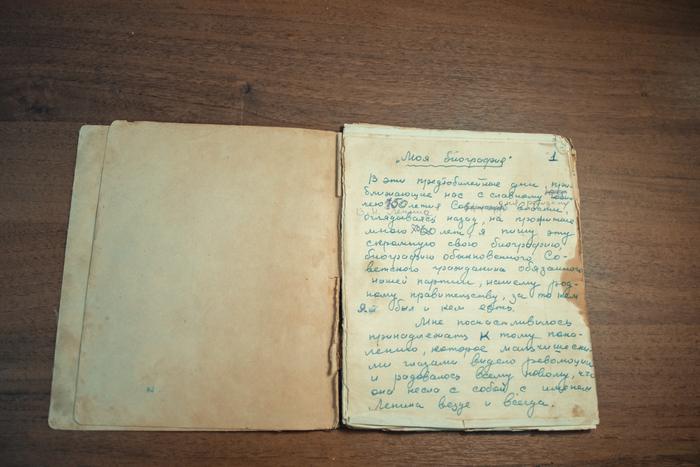 „Моя биография" 1
В эти предюбилейные дни, при-
ближающие нас к славному
лею 50летия Советской власти,
оглядываясь назад, на прожитые
мною 60 лет, я пишу эту
скромную свою биографию,
биографию обыкновенного Со-
ветского гражданина обязанного
нашей партии, нашему род-
ному правительству, за то кем
я был и кем есть.
Мне посчастливилось
принадлежать к тому поко-
лению, которое мальчишески-
ми глазами видело революцию
и радовалось всему новому, что
она несла с собой, с именем
Ленина везде и всегда.